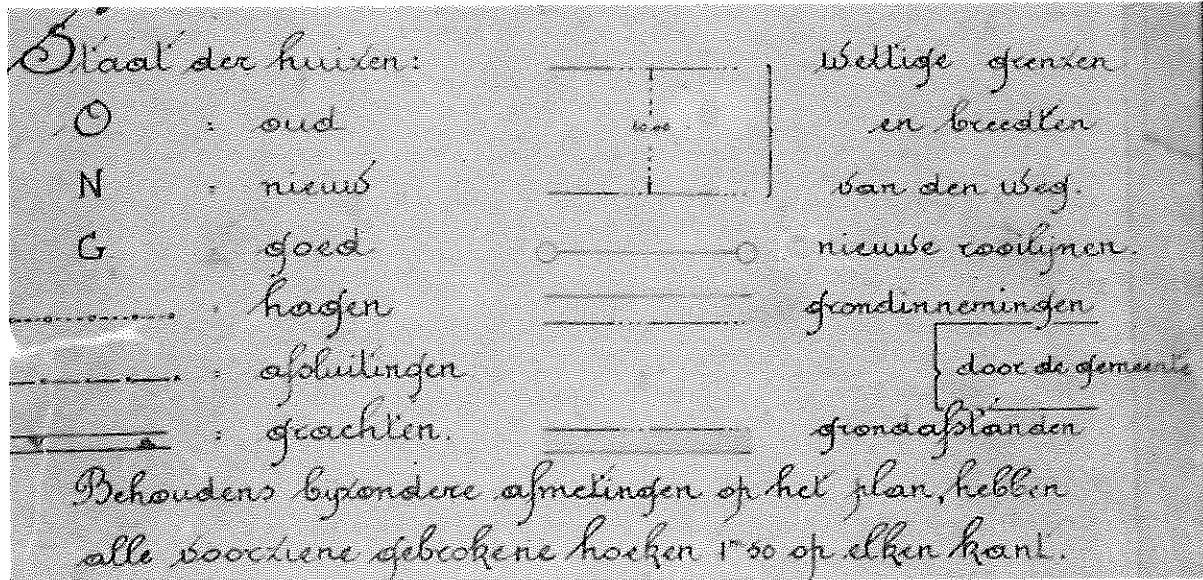 Staat der huizen:
O : oud
N : nieuw
G : goed
: hagen
: afsluitingen
: grachten.
10.00
Wettige grenzen
en breedten
van den weg.
nieuwe rooilynen.
grondinnemingen
door de gemeente
grondafstanden
Behoudens byzondere afmetingen op het plan, hebben
alle voorziene gebrokene hoeken 1m50 op elken kant.